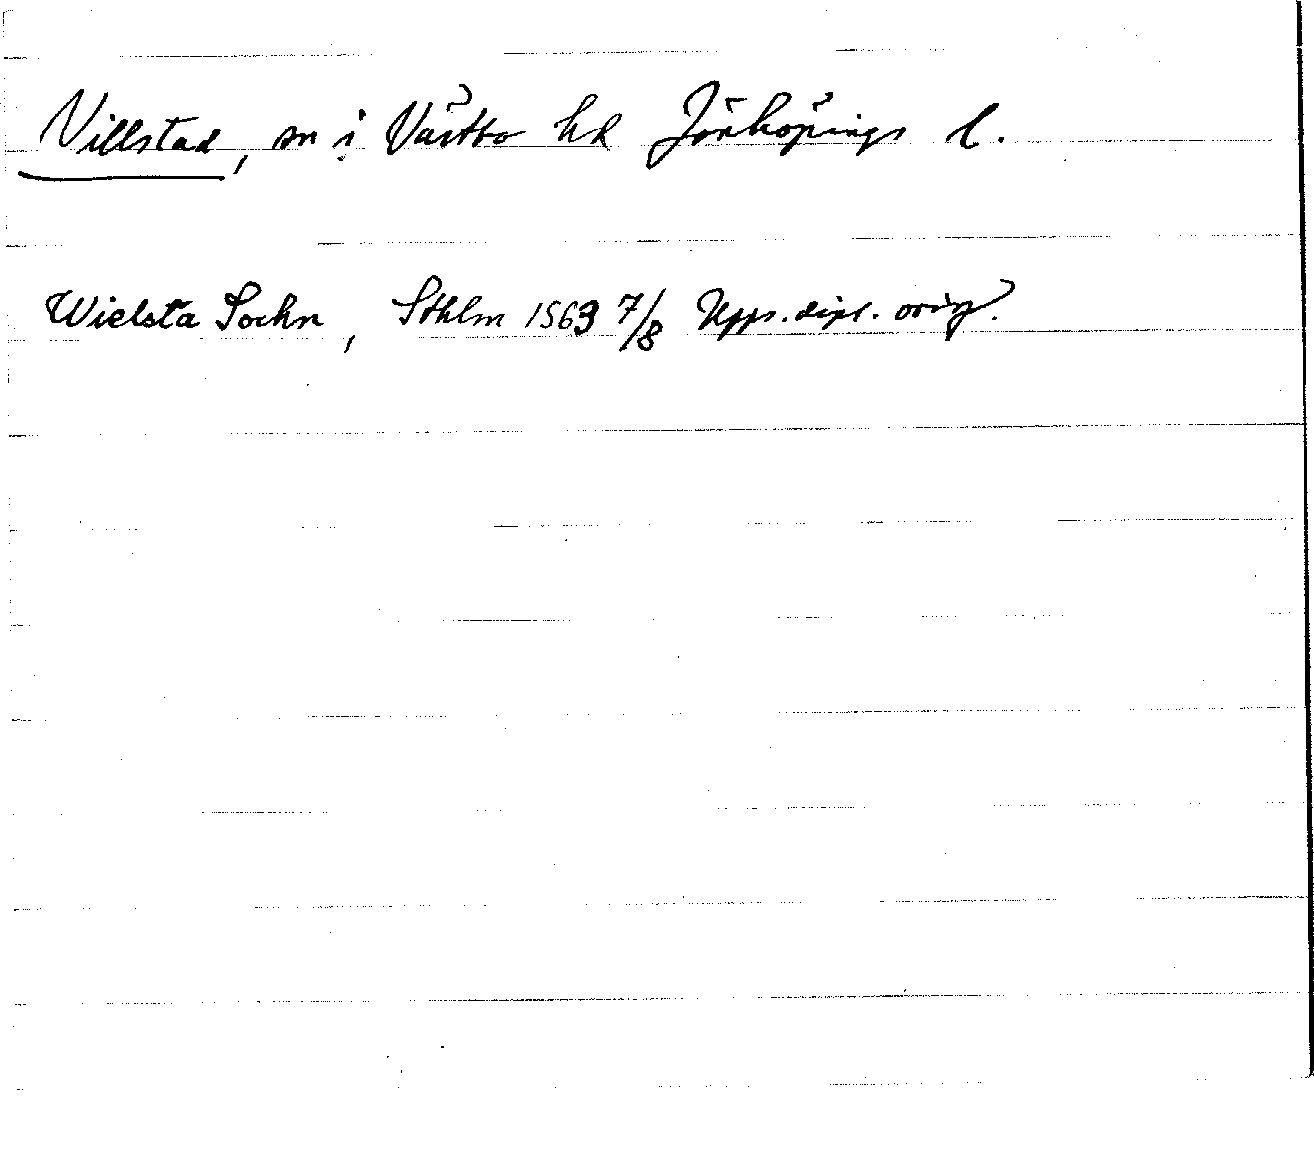 Villstad, sn i Västbo hd Jönköpings l.
Wielsta Sochn, Sthlm 1563 7/8 Upps. dipl. orig.